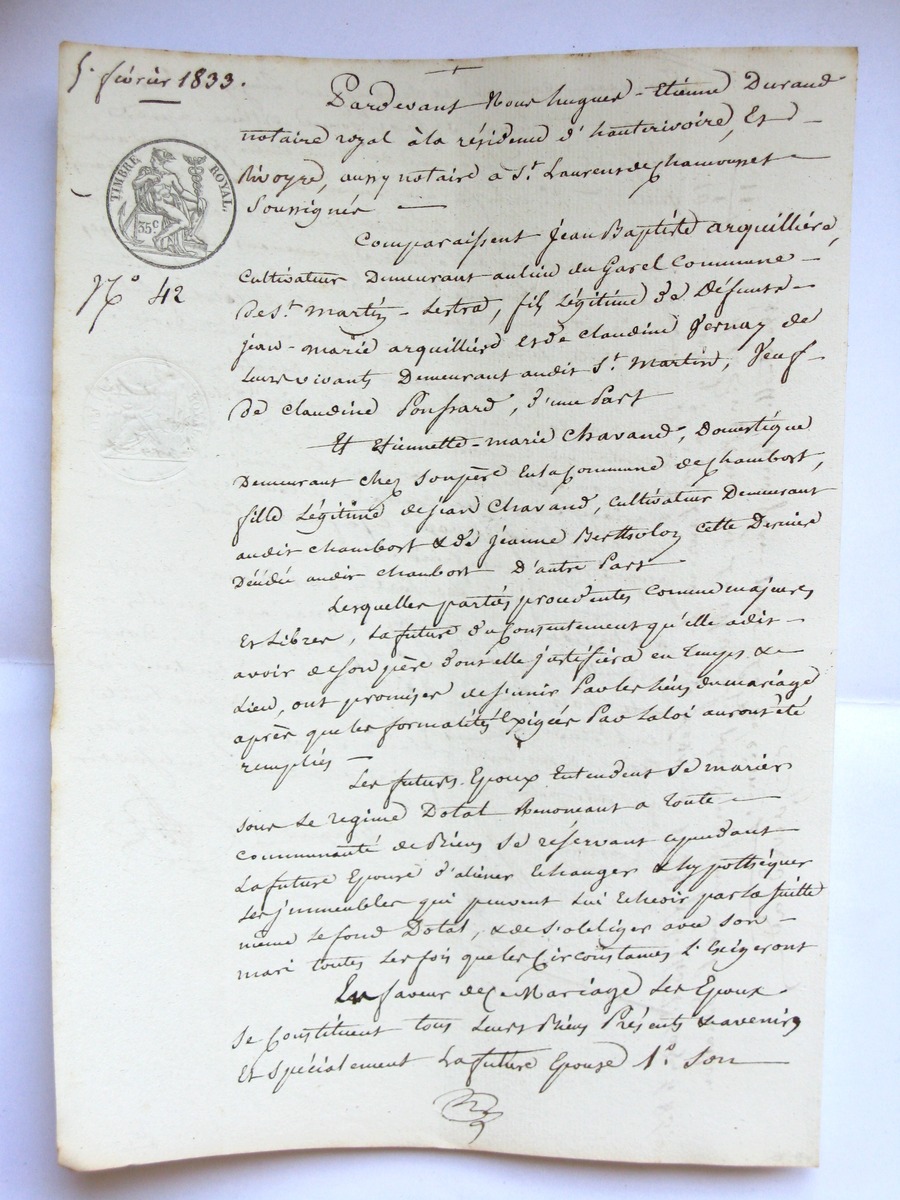 5. février 1833.
TIMBRE ROYAL.
35c
No 42
Pardevant Nous hugues-Etienne Durand
notaire royal à la résidence d'hauterivoire, Et
Rivoyre, aussy notaire a St. Laurent de Chamousset
Soussignés
Comparaissent Jean Baptiste arquillière,
cultivateur Demeurant au lieu du Garel Commune
de St. Martin-Lestra, fils légitime de Défunts
jean-marie arquillière et de Claudine Vernay de
leurs vivants Demeurant audit St. Martin, Veuf
de Claudine Poussard, d'une Part
Et Etiennette-marie Chavand, Domestique
Demeurant chez son père En la Commune de Chambost,
fille légitime de jean Chavand, cultivateur Demeurant
audit Chambost & de jeanne Bertholon cette Dernière
Décédée audit Chambost D'autre Part
Lesquelles parties procédentes comme majeures
Et Libres, La future du Consentement qu'elle a dit
avoir de son père dont elle justifiera en temps &
Lieu, ont promises de s'unir Par les liens du mariage
après que les formalités Exigées Par la loi auront été
remplies
Les futurs Epoux Entendent se marier
sous le regime Dotal Renonceant a toute
communauté de Biens se réservant cependant
La future Epouse d'aliéner Echanger & hypothéquer
Les jmmeubles qui peuvent Lui Echeoir par la suitte
même le fond Dotal, & de s'obliger avec son
mari toutes les fois que les Circonstances L'Exigeront
En faveur de Ce Mariage Les Epoux
se Constituent tous leurs Biens Présents & avenirs
Et spécialement La future Epouse 1o. son